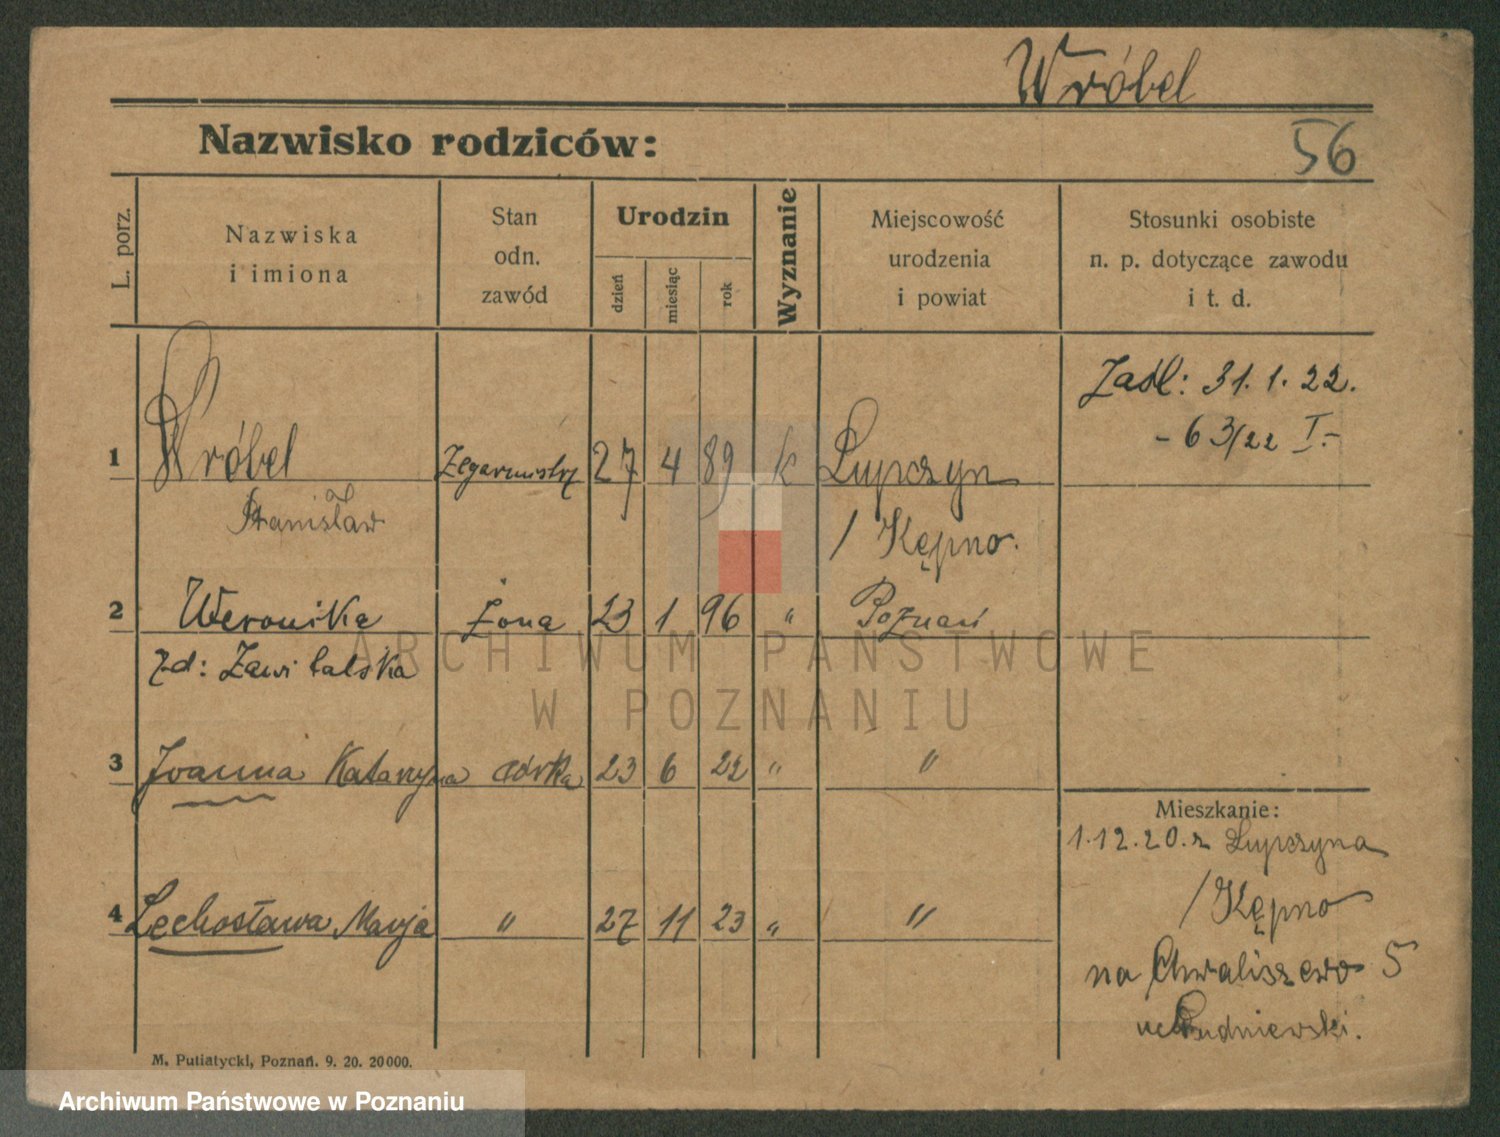 Wróbel
Nazwisko rodziców:
56
L. porz.
Nazwiska
i imiona
Stan
odn.
zawód
Urodzin
dzień
miesiąc
rok
Wyznanie
Miejscowość
urodzenia
i powiat
Stosunki osobiste
n. p. dotyczące zawodu
i t. d.
31. 1. 22.
- 63/22 I.-
1 Wróbel Zegarmistrz 27 4 89 k Lupczyn
Stanisław / Kępno.
2 Weronika żona 23 1 96 " Poznań
zd:
3 Joanna Katarzyna córka 23 6 22 " "
4 Lechosława Marja " 27 11 23 " "
Mieszkanie:
1.12.20. z Lupczyna
/ Kępno
na Chwaliszewo 5
M. Putiatycki, Poznań. 9. 20. 20000.
ARCHIWUM PAŃSTWOWE
W POZNANIU
Archiwum Państwowe w Poznaniu